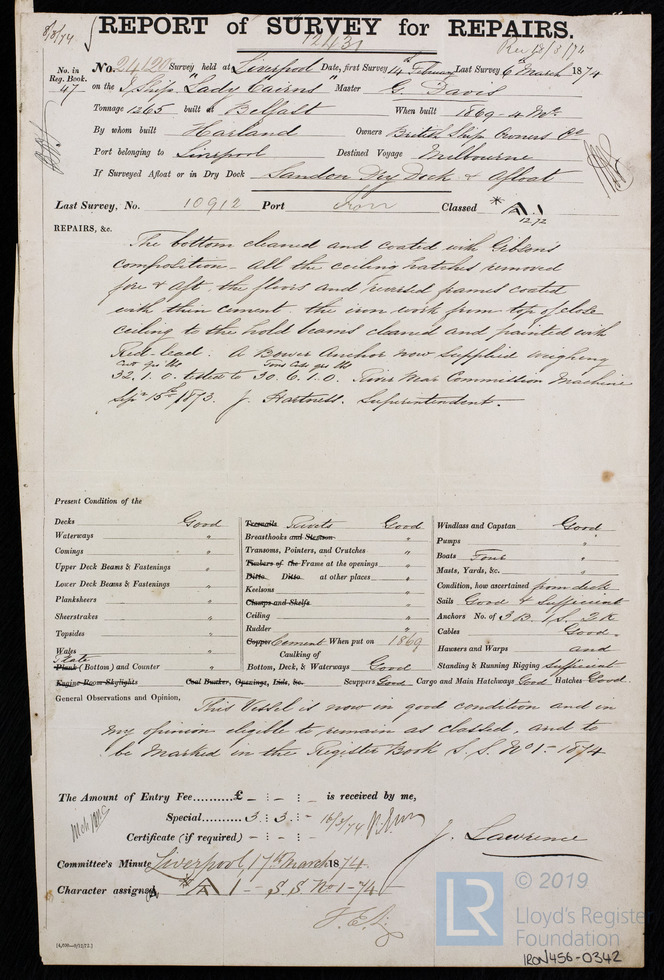 8/3/74
REPORT of SURVEY for REPAIRS.
12431
Rec 18/3/74
No. in Reg. Book. 47
No. 24120 Survey held at Liverpool Date, first Survey 14th February Last Survey 6th March 1874
on the S. Ship "Lady Cairns" Master G. Davis
Tonnage 1265 built at Belfast When built 1869 - 4 Mo
By whom built Harland Owners British Ship Owners Co
Port belonging to Liverpool Destined Voyage Melbourne
If Surveyed Afloat or in Dry Dock Sandon Dry Dock & Afloat
Last Survey, No. 10912 Port Iron Classed * A 1
12.72
REPAIRS, &c.
The bottom cleaned and coated with Gibson's
composition - all the ceiling hatches removed
fore & aft, the floors and reversed frames coated
with thin cement. the iron work from top of close
ceiling to the hold beams cleaned and painted with
Red-lead. A Bower Anchor now supplied weighing
Cwt qrs lbs Tons Cwts qrs lbs
32.1.0. tested to 30.6.1.0. River Wear Commission Machine
Sepr 15th 1873. J. Hartness. Superintendent.
Present Condition of the
Decks Good
Waterways "
Comings "
Upper Deck Beams & Fastenings "
Lower Deck Beams & Fastenings "
Planksheers "
Sheerstrakes "
Topsides "
Wales "
State
Plank (Bottom) and Counter "
Engine Room Skylights Coal Bunker, Openings, Lids, &c.
Treenails Rivets Good
Breasthooks and Stemson "
Transoms, Pointers, and Crutches "
Timbers of the Frame at the openings "
Ditto Ditto at other places "
Keelsons "
Clamps and Shelfs
Ceiling "
Rudder "
Copper Cement When put on 1869
Caulking of
Bottom, Deck, & Waterways Good
Windlass and Capstan Good
Pumps "
Boats Four "
Masts, Yards, &c. "
Condition, how ascertained from deck
Sails Good & Sufficient
Anchors No. of 3 B. 1 S. 2 K
Cables Good
Hawsers and Warps and
Standing & Running Rigging sufficient
Scuppers Good Cargo and Main Hatchways Good Hatches Good.
General Observations and Opinion,
This Vessel is now in good condition and in
my opinion eligible to remain as classed, and to
be Marked in the Register Book S.S. No 1 - 1874
The Amount of Entry Fee..........£ - : - : - is received by me,
Special........... 3 : 3 : - 16/3/74
Certificate (if required) - : - : -
J. Lawrence
Committee's Minute Liverpool, 17th March 1874
Character assigned * A 1 - S.S. No 1 - 74
[4,000—9/12/72.]
LR © 2019
Lloyd's Register
Foundation
IRON456-0342